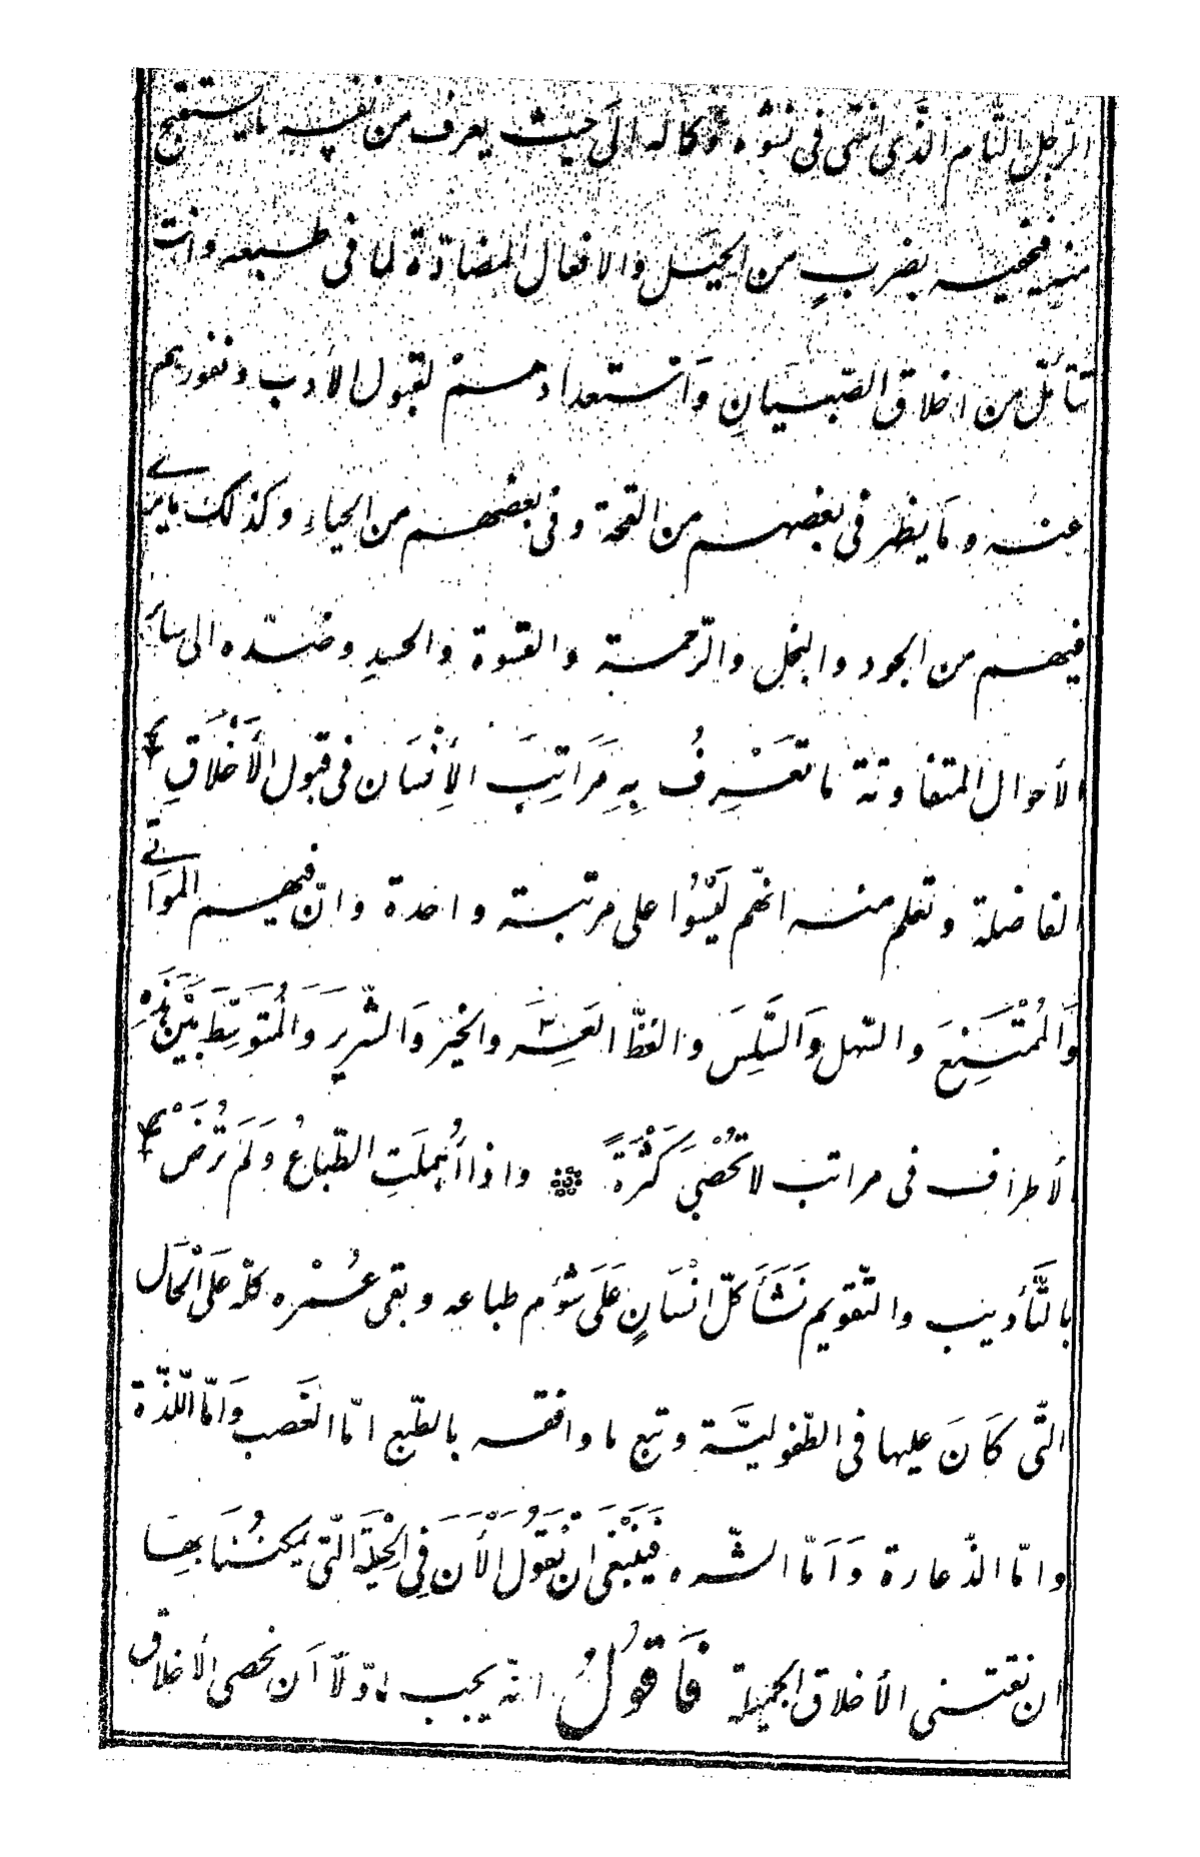 الرّجل التّام الّذى انتهى فى نشوه وكماله الَى حيث يعرف من نفسه ما يستقبح
منه فيخفيه بضربٍ من الحيَل والافعال المضادّة لما فى طبيعه وانت
تتأمّل من اخلاق الصّبيانِ وَاستعدادهمْ لقبول الأدب ونفورهم
عنه ومَا يظهر فى بعضهم من القحة وفى بعضهم من الحياءِ وكذلك مايرى
فيهم من الجود والبخل والرّحمة والقسوة والحسدِ وضدّه الى سائر
الأحوال المتفاوتة ما تعَرِفُ بِهِ مَرَاتِبَ الإِنْسَان فى قبول الأَخْلَاقِ
الفاضلة وتعلم منه انّهم لَيْسُوا على مرتبة واحدة وانّ فيهم المواتى
وَالمُمْتَنِعَ والسّهل وَالسَّلِسَ والفظّ العَسِرَ والخيّر وَالشّرير وَالْمُتَوَسِّطَ بَيْنَ هَذِهِ
الأطراف فى مراتب لا تُحْصَى كَثْرَةً واذا أُهمِلَتِ الطّباعُ وَلَم تُرَضْ
بالتَّأديب والتّقويم نَشَأَ كلّ انْسَانٍ عَلَى سُوْم طباعه وبقى عُمْره كلّه عَلَى الْحَال
الّتى كَانَ عليها فى الطّفوليَّة وتبع ما وافقه بالطّبع امّا الغَضب وَامّا اللّذّة
وامّا الذّعارة وَاَمّا الشّره فَيَنْبَغى ان نَقُولَ الْأَنَ فِى الْحِيْلَةِ الّتى يمكنُنَا بهَا
ان نقتنى الأخلاق الجميلة فَاَقولُ انّه يجب اوّلاً اَن نحصى الأخلاق